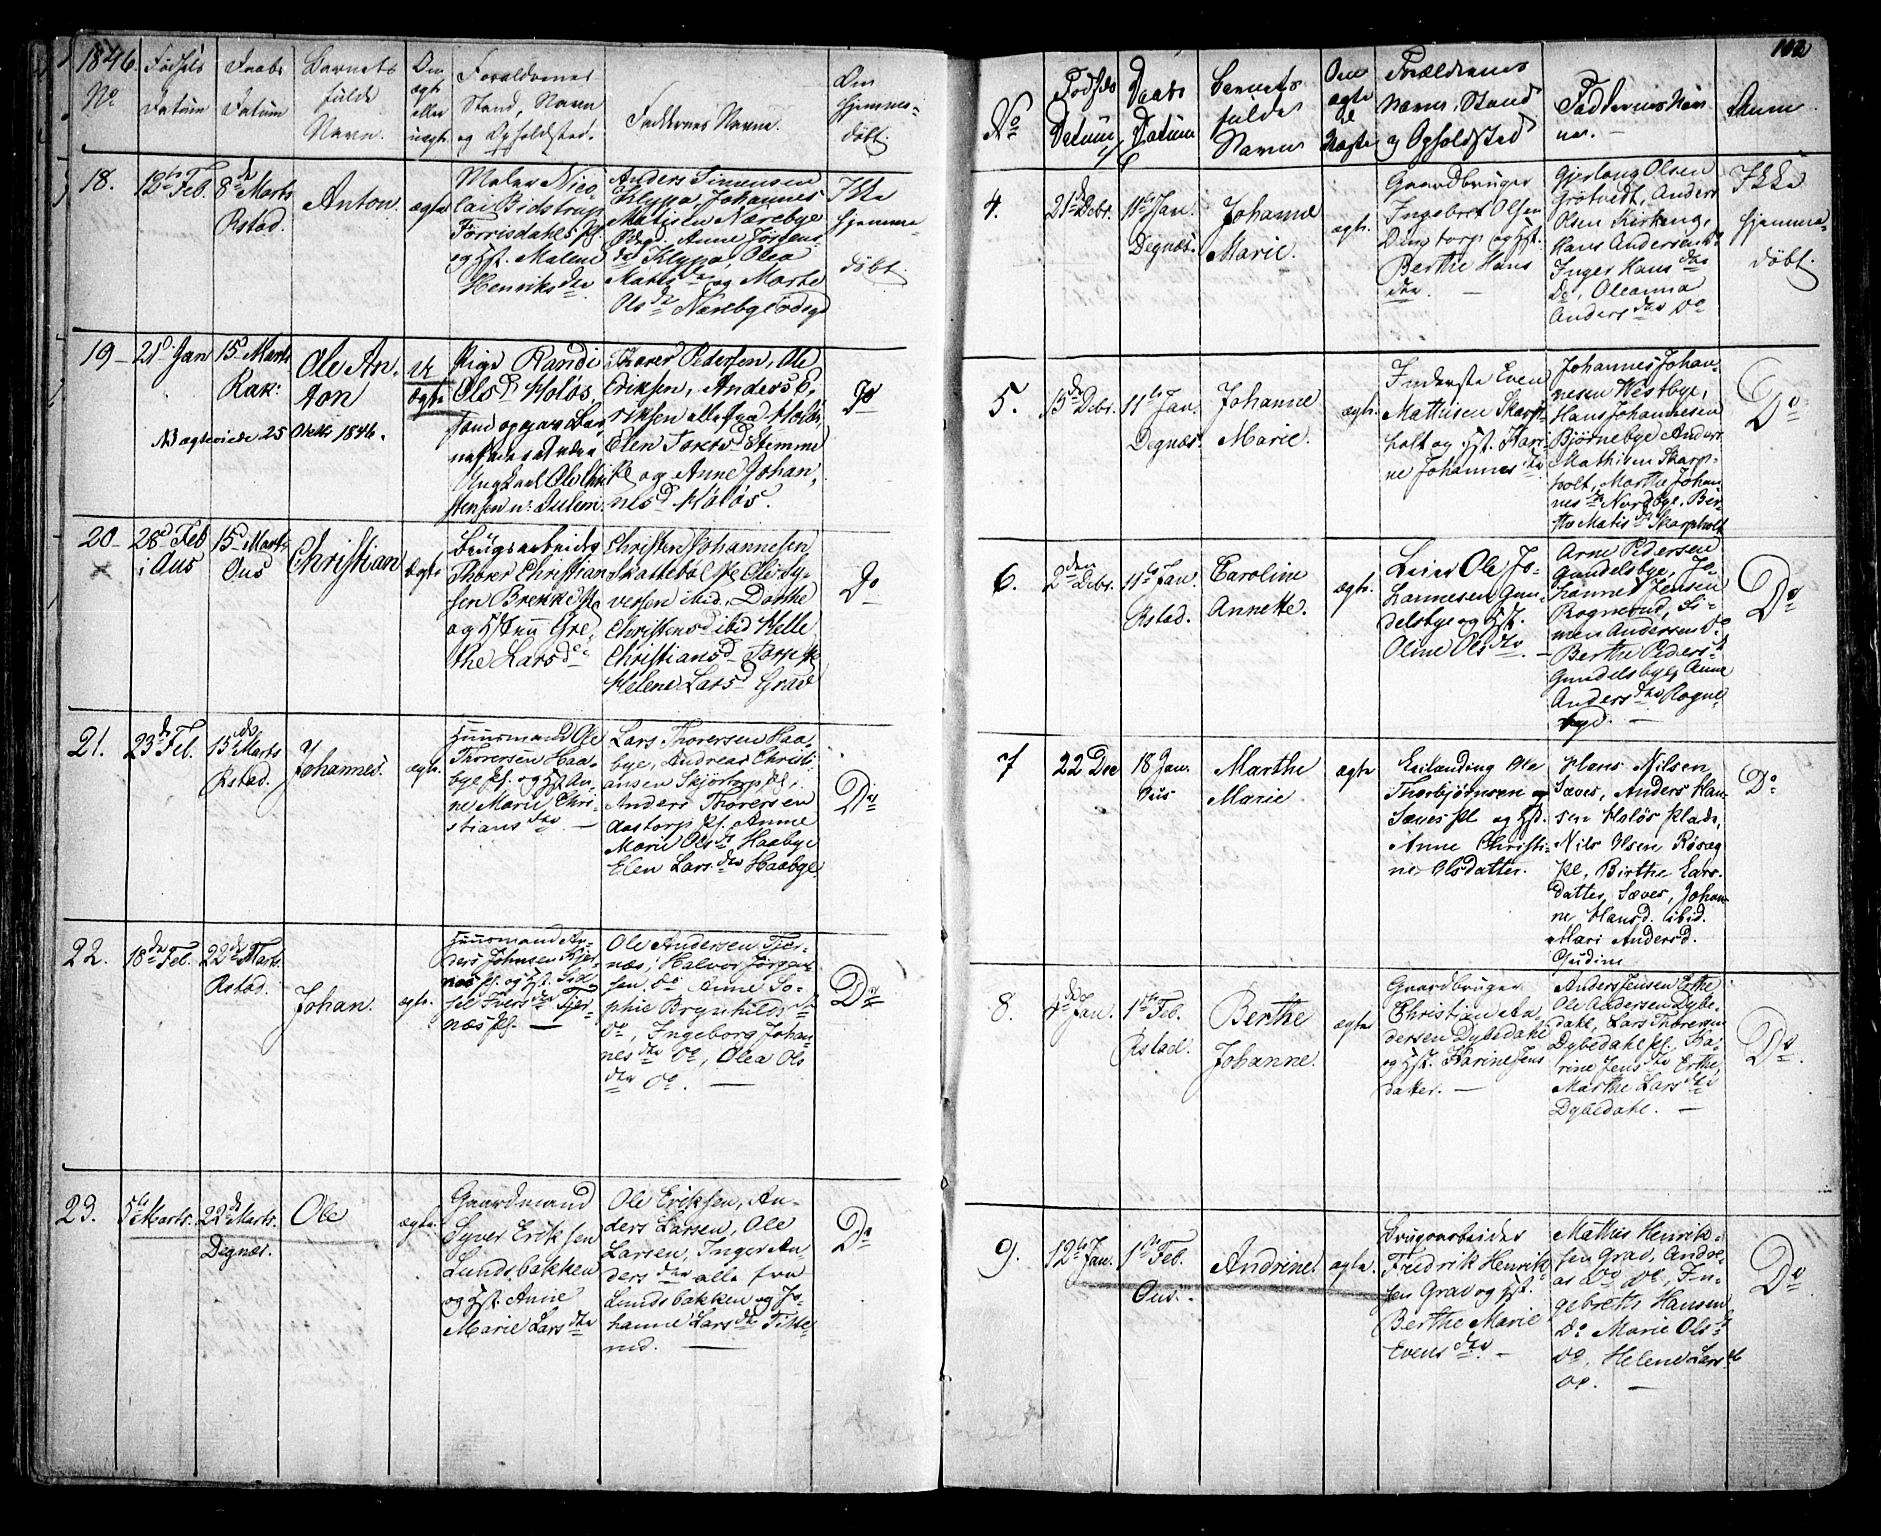 1846.
No
Fødsels
Datum
Daabs
Datum
Barnets
fulde
Navn.
Om
ægte
eller
uægte
Forældrenes
Stand, Navn
og Opholdsted.
Faddernes Navne.
Om
hjemme-
døbt
18.
12te Feb.
8de Marts
Rstad.
Anton
ægte
Maler Nico-
lai Bidstrup
Torrisdahls Pl.
og Hst. Malene
Henriks dtr
Anders Simensen
Klypa, Johannes
Matisen Nærebye
Ødeg. Anne Jostens
dtr Klypa, Olea
Matisdtr og Marte
Ols dtr Nærebyeødegd
Ikke
hjemme
døbt.
19
21d Jan
15d Marts
Rak:
Ole An-
ton
U
ægte
Pige Randi
Olsd Holøs,
Ungkarl Ole Chri
stensen
Thorer Pedersen, Ole
Eriksen, Anders E,
riksen alle fra Holøs,
Elen
Pl og Anne Johan,
nesd Holøs.
Do
N.B. ægteviede 25 Oktbr 1846.
20
28d Feb
i Aus
15d Marts
Ous
Christian
Ægte
Brugsarbeider
Thorer Christian
sen Brekke Pl
og Hstru Gre,
the Larsd
Christen Johannesen
Skattebøl Pl Ole Sy-
versen ibid. Dorthe
Christensd ibid Helle
Christiansd Torp Pl
Helene Larsd Grav
Do
21.
23d Feb.
15de Marts
Rstad.
Johannes.
ægte.
Huusmand Ole
Thorersen Haa-
bye Pl. og Hst An-
ne Marie Chri-
stians dtr. —
Lars Thorersen Haa-
bye, Andreas Christi-
ansen Skjørtorp Pl,
Anders Thorersen
Aastorp Pl. Anne
Marie Olsdtr Haabye
Elen Larsdtr Haabye.
Do
22.
18de Feb.
22de Marts.
Rstad.
Johan.
ægte.
Huusmand An-
ders Johnsen Tjer-
næs Pl. og Hst. Sid-
sel Ivers dtr Tjer-
næs Pl. —
Ole Andersen Tjer-
næs, Halvor Jørgen-
sen do Anne So-
phie Brynhilds dtr
do, Ingeborg Johan-
nes dtr do, Olea Ols
dtr do. —
Do
23.
5te Marts.
22de Marts.
Degnæs.
Ole
ægte.
Gaardmand
Syver Eriksen
Lundsbakken
og Hst. Anne
Marie Lars dtr
Ole Eriksen, An-
ders Larsen, Ole
Larsen, Inger An-
ders dtr alle fra
Lundsbakken og Jo-
hanne Lars dtr
rud. —
Do
102
No
Fødsels
Datum
Daabs
Datum
Barnets
fulde
Navn
Om
ægte
el
uægte
Forældrenes
Navne, Stand
og Opholdsted
Faddernes Nav
ne. —
Anm
4.
21de Debr.
11te Jan.
Degnæs.
Johanne
Marie.
ægte.
Gaardbruger
Ingebret Olsen
torp og Hst.
Berthe Hans
dtr. —
Gjerlaug Olsen
Grøtvedt, Anders
Olsen Kirkeng,
Hans Andersen Do
Inger Hans dtr
Do, Oleanna
Anders dtr Do
Ikke
hjemme-
døbt.
5.
13de Debr.
11te Jan.
Degnæs.
Johanne
Marie.
ægte.
Inderste Even
Mathisen Skarp-
holt og Hst. Kari-
ne Johannes dtr
Johannes Johan-
nesen Westbye,
Hans Johannesen
Bjørnebye Anders
Mathisen Skarp-
holt, Marthe Johan
nes dtr Nordbye, Ber-
the Matis dtr Skarpholt
Do
6.
2den Debr.
11te Jan.
Rstad.
Caroline
Annette.
ægte.
Leier Ole Jo-
hannesen Gun-
delsbye og Hst.
Oline Ols dtr. —
Arne Pedersen
Gundelsbye, Jo-
hannes Jensen
Rognerud, Si-
men Andersen Do
Berthe Pedersd
Gundelsbye, Anne
Anders dtr Rogne
byd. —
Do
7
22 Dec
18 Jan.
Ous
Marthe
Marie
ægte
Eilænding Ole
Thorbjørnsen og
Sæves Pl og Hst.
Anne Christi-
ne Olsdatter.
Hans Nilsen
Sæves, Anders Han
sen Holøs Plads,
Nils Olsen Røsæg
Pl, Birthe Lars-
datter, Sæves, Johan
ne Hansd. ibid.
Mari Andersd.
Gudim
Do
8.
4de Jan.
1ste Feb.
Rstad.
Berthe
Johanne.
ægte
Gaardbruger
Christian An-
dersen Dybedahl
og Hst. Karine Jens
datter. —
Anders Jensen Erthe
Ole Andersen Dybe-
dahl, Lars Thorersen
Dybedahl Pl. Ka-
rine Jens dtr Erthe,
Marthe Lars dtr
Dybedahl. —
Do.
9.
12te Jan.
1ste Feb.
Ous.
Andrine.
ægte.
Brugsarbeider
Fredrik Henrik-
sen Grav og Hst.
Berthe Marie
Evens dtr. —
Mathis Henrik-
sen Grav, Andre-
as do do, In-
gebreth Hansen
Do Marie Olsd
do, Helene Larsd
do. —
Do